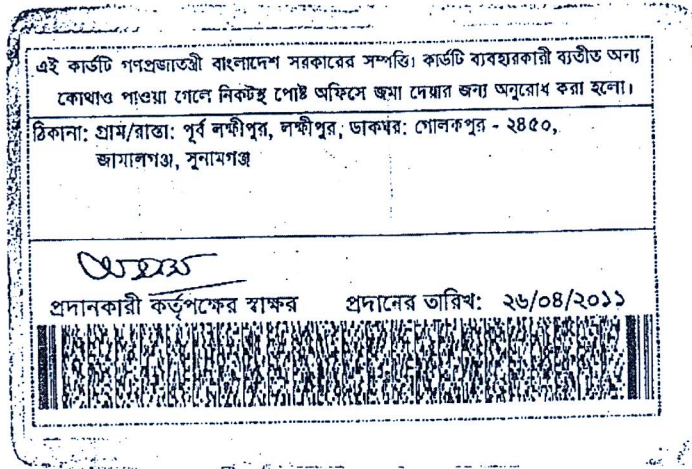 এই কার্ডটি গণপ্রজাতন্ত্রী বাংলাদেশ সরকারের সম্পত্তি। কার্ডটি ব্যবহারকারী ব্যতীত অন্য
কোথাও পাওয়া গেলে নিকটস্থ পোষ্ট অফিসে জমা দেয়ার জন্য অনুরোধ করা হলো।
ঠিকানা: গ্রাম/রাস্তা: পূর্ব লক্ষীপুর, লক্ষীপুর, ডাকঘর: গোলকপুর - ২৪৫০,
জামালগঞ্জ, সুনামগঞ্জ
প্রদানকারী কর্তৃপক্ষের স্বাক্ষর প্রদানের তারিখ: ২৬/০৪/২০১১